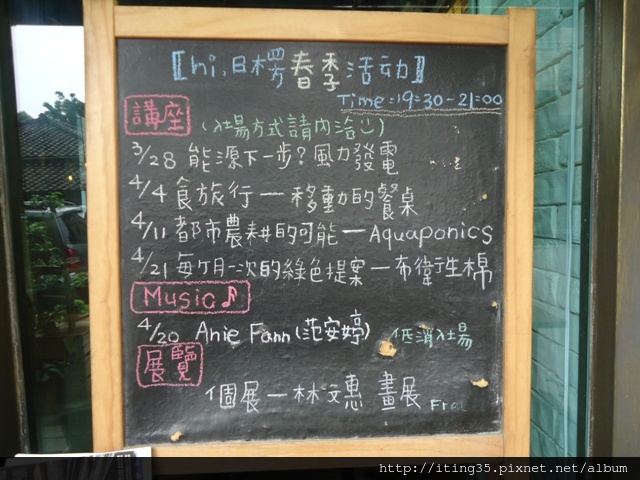 【hi,日楞春季活动】
Time:19:30-21:00
講座
(入場方式請內洽)
3/28 能源下一步?風力發電
4/4 食旅行一移動的餐桌
4/11 都市農耕的可能一Aquaponics
4/21 每ケ月一次的綠色提案一布衛生棉
Music♪
4/20 Anie Fann(范安婷) 低消入場
展覽
個展一林文惠 畫展 Free
http://iting35.pixnet.net/album